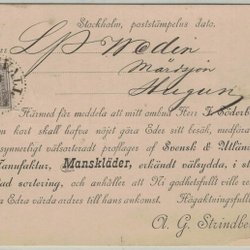 Stockholm, poststämpelns dato.
L J Weden
Mårdsjön
Stugun
Härmed får meddela att mitt ombud Herr V. Söderb
om kort skall hafva nöjet göra Eder sitt besök, medföra
synnerligt välsorteradt proflager af Svensk & Utlän
Manufaktur, Manskläder, erkändt välsydda, i st
ad sortering, och anhåller att Ni godhetsfullt ville re
Edra värda ordres till hans ankomst. Högaktningsfull
A. G. Strindb